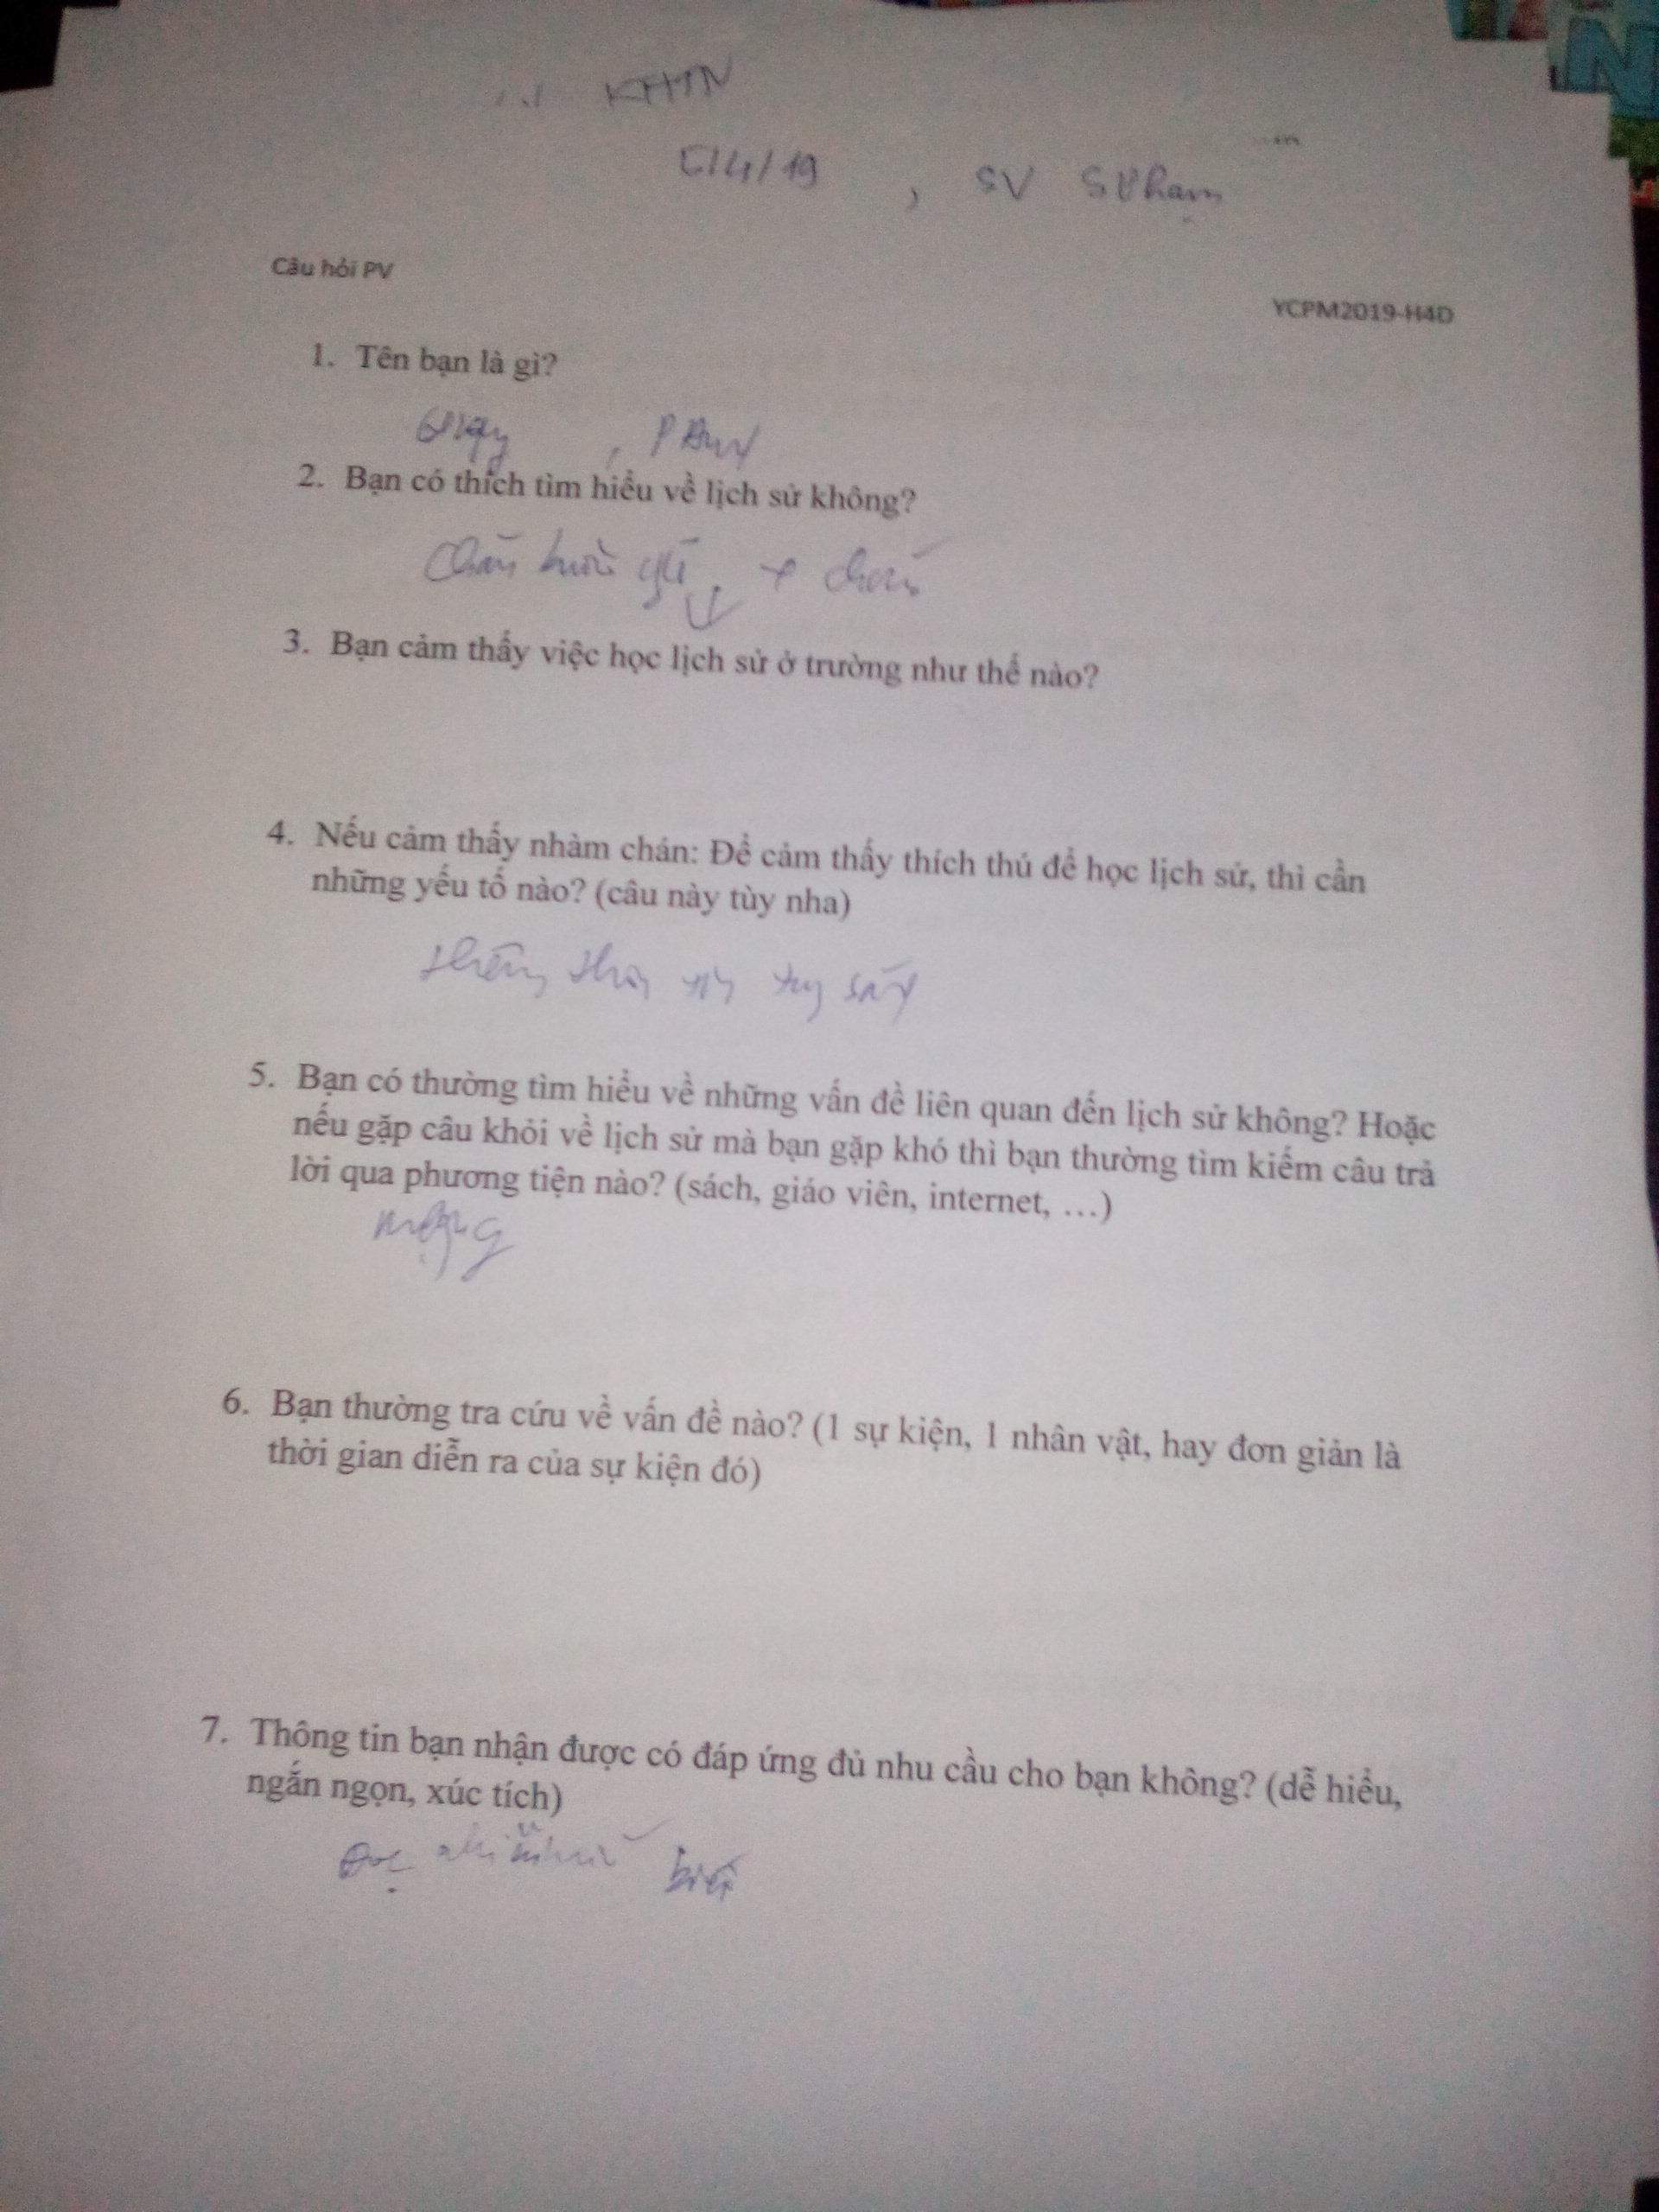 KHTN
5/4/19 , SV
Câu hỏi PV
YCPM2019-H4D
1. Tên bạn là gì?
2. Bạn có thích tìm hiểu về lịch sử không?
3. Bạn cảm thấy việc học lịch sử ở trường như thế nào?
4. Nếu cảm thấy nhàm chán: Để cảm thấy thích thú để học lịch sử, thì cần
những yếu tố nào? (câu này tùy nha)
5. Bạn có thường tìm hiểu về những vấn đề liên quan đến lịch sử không? Hoặc
nếu gặp câu khỏi về lịch sử mà bạn gặp khó thì bạn thường tìm kiếm câu trả
lời qua phương tiện nào? (sách, giáo viên, internet, …)
mạng
6. Bạn thường tra cứu về vấn đề nào? (1 sự kiện, 1 nhân vật, hay đơn giản là
thời gian diễn ra của sự kiện đó)
7. Thông tin bạn nhận được có đáp ứng đủ nhu cầu cho bạn không? (dễ hiểu,
ngắn ngọn, xúc tích)